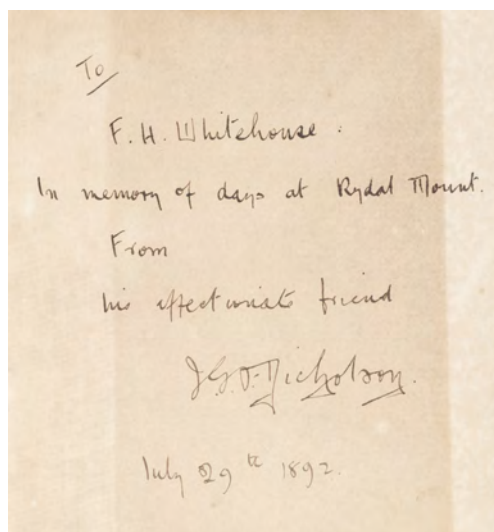 To
F. H. Whitehouse.
In memory of days at Rydal Mount.
From
his affectionate friend
J.G.F. Nicholson.
July 29th 1892.